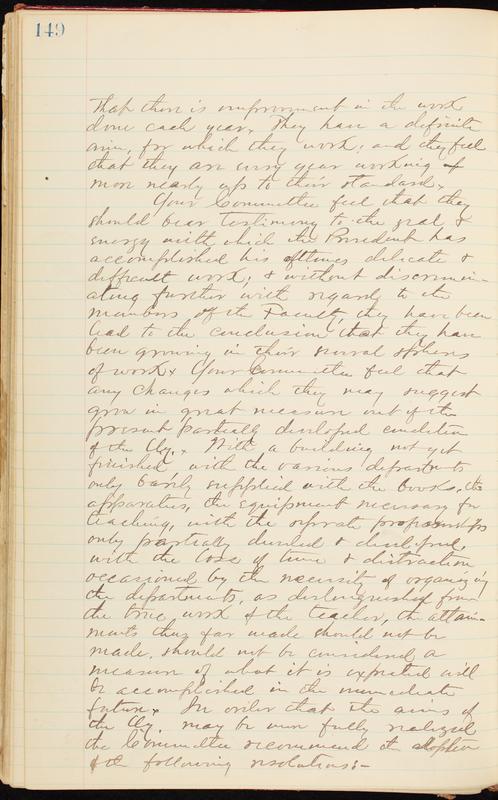 149
That there is improvement in the work
done each year. They have a definite
aim, for which they work; and they feel
that they are every year working
more nearly up to their standard.
Your Committee feel that they
should bear testimony to the zeal &
energy with which the President has
accomplished his ofttimes delicate &
difficult work; & without discrimin-
ating further with regard to the
members of the Faculty, they have been
lead to the conclusion that they have
been growing in their several spheres
of work. Your Committee feel that
any changes which they may suggest
grow in great measure out of the
present partially developed condition
of the Uy. With a building not yet
finished with the various departments
only barely supplied with the books, the
apparatus, the equipment necessary for
teaching, with the separate professorships
only partially divided & developed,
with the loss of time & distraction
occasioned by the necessity of organizing
the departments, as distinguished from
the true work of the teacher, the attain-
ments thus far made should not be
made. should not be considered a
measure of what it is expected will
be accomplished in the immediate
future. In order that the aims of
the Uy. may be more fully realized
the Committee recommend the adoption
of the following resolutions:-